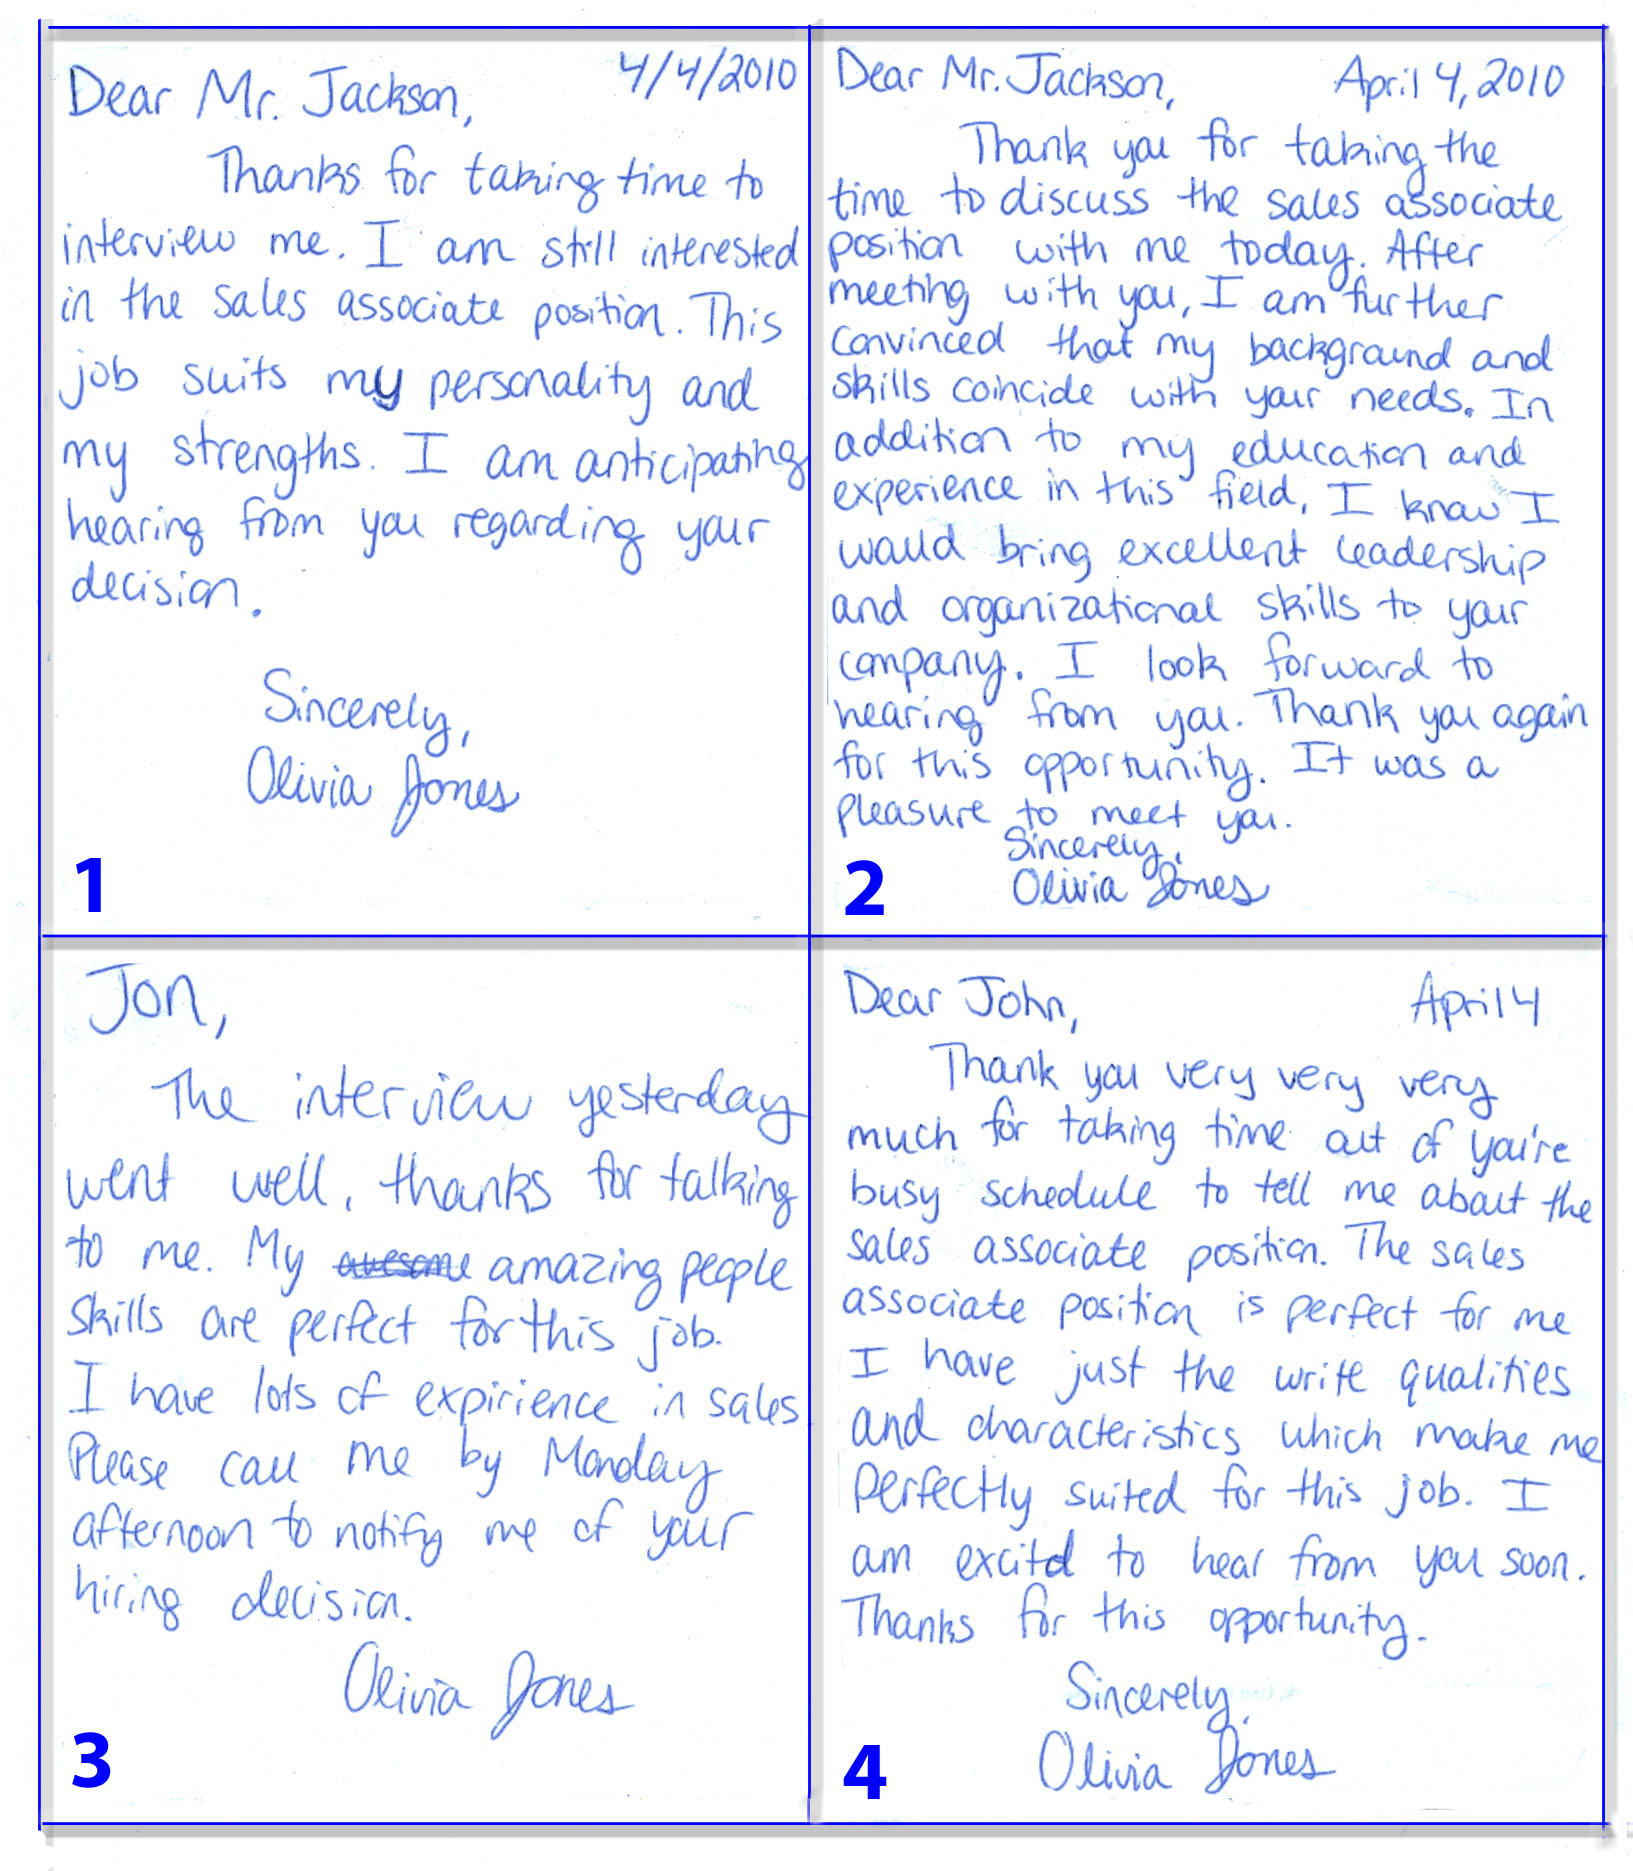 Dear Mr. Jackson, 4/4/2010
Thanks for taking time to
interview me. I am still interested
in the sales associate position. This
job suits my personality and
my strengths. I am anticipating
hearing from you regarding your
decision.
Sincerely,
Olivia Jones
1
Dear Mr. Jackson, April 4, 2010
Thank you for taking the
time to discuss the sales associate
position with me today. After
meeting with you, I am further
convinced that my background and
skills coincide with your needs. In
addition to my education and
experience in this field, I know I
would bring excellent leadership
and organizational skills to your
company. I look forward to
hearing from you. Thank you again
for this opportunity. It was a
pleasure to meet you.
Sincerely,
Olivia Jones
2
Jon,
The interview yesterday
went well, thanks for talking
to me. My awesome amazing people
skills are perfect for this job.
I have lots of expirience in sales
Please call me by Monday
afternoon to notify me of your
hiring decision.
Olivia Jones
3
Dear John, April 4
Thank you very very very
much for taking time out of you're
busy schedule to tell me about the
sales associate position. The sales
associate position is perfect for me
I have just the write qualities
and characteristics which make me
perfectly suited for this job. I
am excitd to hear from you soon.
Thanks for this opportunity.
Sincerely,
Olivia Jones
4